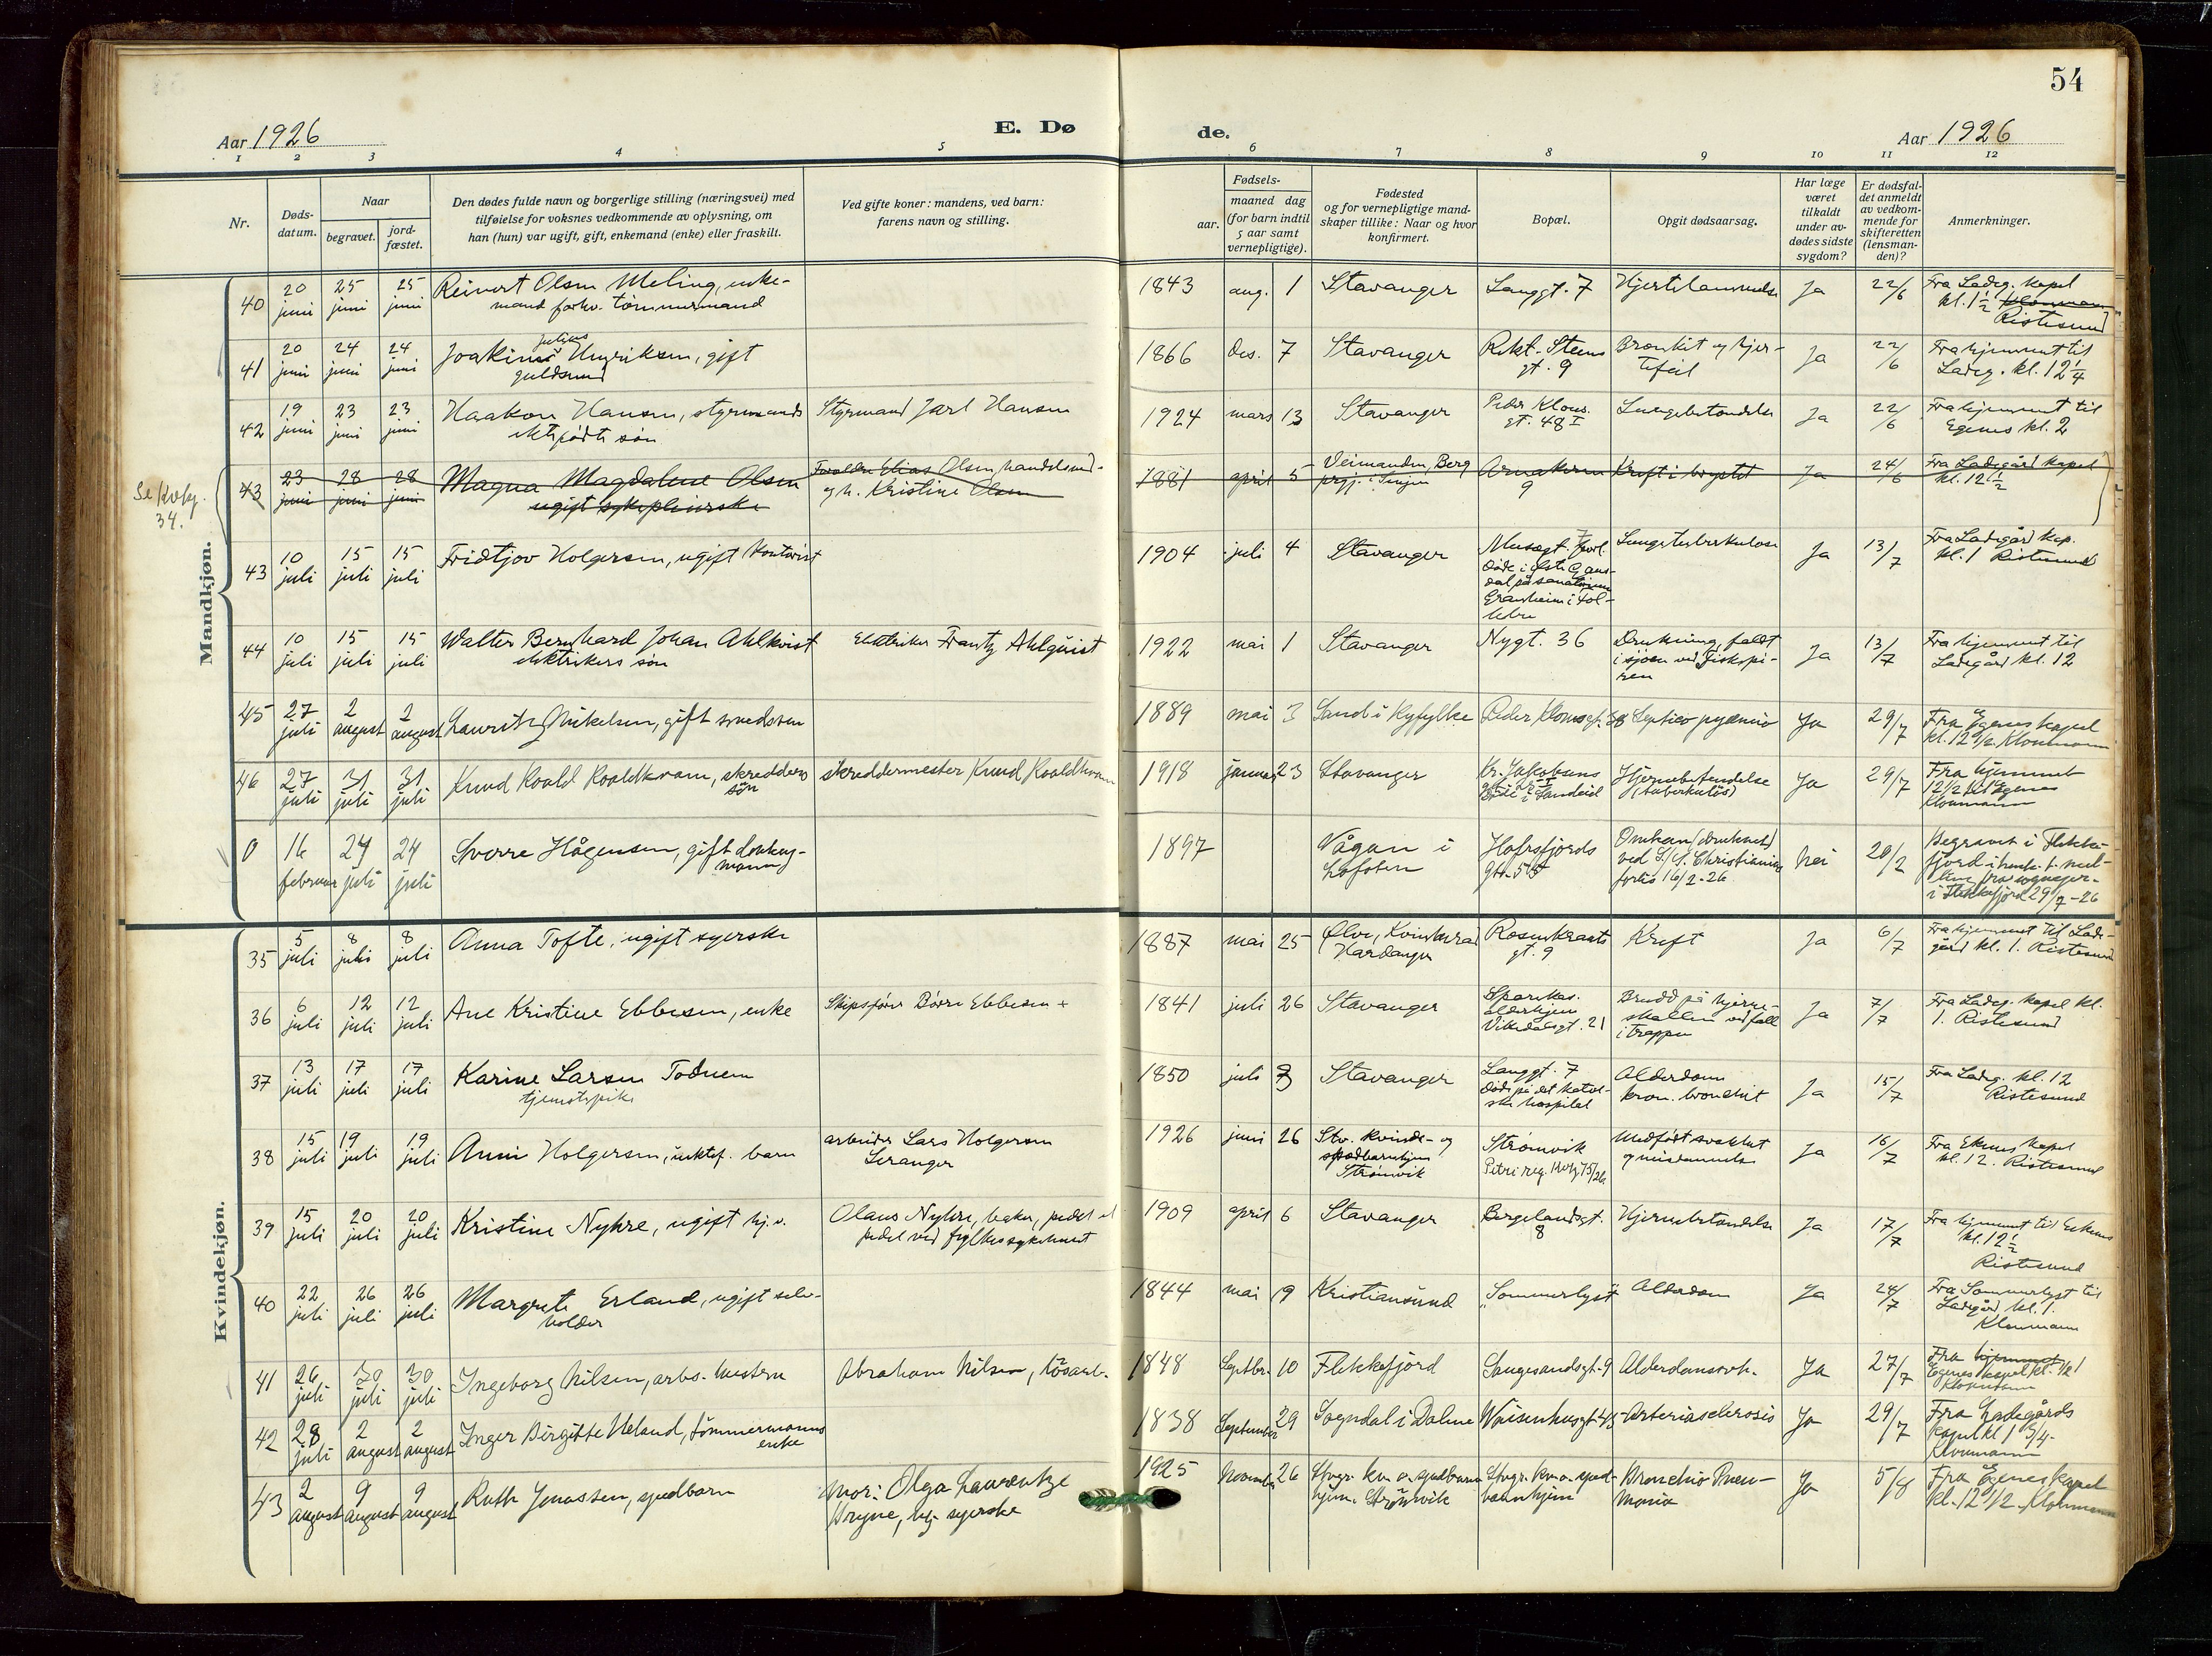 54
Aar 1926
E. Dø
de.
Aar 1926
1 2 3 4 5 6 7 8 9 10 11 12
Nr.
Døds-
datum.
Naar
begravet.
jord-
fæstet.
Den dødes fulde navn og borgerlige stilling (næringsvei) med
tilføielse for voksnes vedkommende av oplysning, om
han (hun) var ugift, gift, enkemand (enke) eller fraskilt.
Ved gifte koner: mandens, ved barn:
farens navn og stilling.
Fødsels-
aar.
maaned dag
(for barn indtil
5 aar samt
vernepligtige).
Fødested
og for vernepligtige mand-
skaper tillike: Naar og hvor
konfirmert.
Bopæl.
Opgit dødsaarsag.
Har læge
været
tilkaldt
under av-
dødes sidste
sygdom?
Er dødsfal-
det anmeldt
av vedkom-
mende for
skifteretten
(lensman-
den)?
Anmerkninger.
Mandkjøn.
40
20
juni
25
juni
25
juni
Reinert Olsen Meling, enke-
mand forhv. tømmermand
1843 aug. 1
Stavanger
Langgt. 7
Ja
22/6
Fra Ladeg. kapel
kl. 1 1/2
Ristesund
41
20
juni
24
juni
24
juni
julius
Joakim Henriksen, gift
guldsmed
1866 des. 7
Stavanger
Rekt. Steens
gt. 9
Bronkit og hjer-
tefeil
Ja
22/6
Fra hjemmet til
Ladeg. kl. 12 1/4
42
19
juni
23
juni
23
juni
Haakon Hansen, styrmands
ektefødte søn
Styrmand Jarl Hansen
1924 mars 13
Stavanger
Peder Klows.
gt. 48 I
Lungebetændelse
Ja
22/6
Fra hjemmet til
Egenes kl. 2
Se kvby.
34.
43
23
juni
28
juni
28
juni
Magna Magdalene Olsen
ugift sykepleierske
Forældre Elias Olsen, handelsmd.
og h. Kristine Olsen
1881 april 5
Veimanden, Berg
prgj. i Senjen
9
Kreft i brystet
Ja
24/6
Fra Ladegård kapel
kl. 12 1/2
43
10
juli
15
juli
15
juli
Fridtjov Holgersen, ugift kontorist
1904 juli 4
Stavanger
Musegt. 7
Døde i Østre Gaus-
dal på sanatorium
Granheim i Fol-
lebu
Lungetuberkulose
Ja
13/7
Fra Ladegård kap.
kl. 1 Ristesund
44
10
juli
15
juli
15
juli
Walter Bernhard Johan Ahlkvist
elektrikers søn
Elektriker Frantz Ahlquist
1922 mai 1
Stavanger
Nygt. 36
Drukning, faldt
i sjøen ved Fiskepi-
ren
Ja
13/7
Fra hjemmet til
Ladegård kl. 12
45
27
juli
2
august
2
august
Lauritz Mikelsen, gift smedsven
1889 mai 3
Sand i Ryfylke
Peder Klowsgt. 38
Septico pyæmie
Ja
29/7
Fra Egenes kapel
kl. 12 1/2. Kloumann
46
27
juli
31
juli
31
juli
Knud Roald Roaldkvam, skredders
søn
skreddermester Knud Roaldkvam
1918 januar 23
Stavanger
Kr. Jakobsens
Døde i Sandeid
Hjernebetendelse
(tuberkuløs)
Ja
29/7
Fra hjemmet
12 1/2 til Egenes
Kloumann
0
16
februar
24
juli
24
juli
Sverre Hågensen, gift donkey-
mann
1897
Vågan i
Lofoten
Hafrsfjords
gt. 55
Omkom (druknet)
ved S/S. Christiania
forlis 16/2-26
Nei
20/2
Begravet i Flekke-
fjord
i Flekkefjord 29/7-26
Kvindekjøn.
35
5
juli
8
juli
8
juli
Anna Tofte, ugift syerske
1887 mai 25
Ølve, Kvinherad
Hardanger
Rosenkrants
gt. 9
Kreft
Ja
6/7
Fra hjemmet til Lade-
gård kl. 1. Ristesund
36
6
juli
12
juli
12
juli
Ane Kristine Ebbesen, enke
Skipsfører Børre Ebbesen +
1841 juli 26
Stavanger
Sparekas.
alderhjem
Vikedalsgt. 21
Brudd på hjerne-
skallen ved fall
i trappe
Ja
7/7
Fra Ladeg. kapel kl.
1. Ristesund
37
13
juli
17
juli
17
juli
Karine Larsen Todnem
tjenestepike
1850 juli 3
Stavanger
Langgt. 7
døde på det katol-
ske hospital
Alderdom
kron. bronchit
Ja
15/7
Fra Ladeg. kl. 12
Ristesund
38
15
juli
19
juli
19
juli
Anni Holgersen, uektef. barn
arbeider Lars Holgersen
Leranger
1926 juni 26
Stv. kvinde- og
spædbarnhjem
Strømvik
Strømvik
Petri reg.
Medfødt svakhet
Ja
16/7
Fra Ekenes kapel
kl. 12. Ristesund
39
15
juli
20
juli
20
juli
Kristine Nyhre, ugift hj.v.
Olaus Nyhre, baker,
pedel ved fylkessykehuset
1909 april 6
Stavanger
Bergelandsgt.
8
Hjernebetændelse
Ja
17/7
Fra hjemmet til Eekenes
kl. 12 1/2
Ristesund
40
22
juli
26
juli
26
juli
Margrete Erland, ugift selv-
holder
1844 mai 9
Kristiansund
"Sommerlyst
Alderdom
Ja
24/7
Fra Sommerlyst til
Ladegård kl. 1.
Kloumann
41
26
juli
30
juli
30
juli
Ingeborg Nilsen, arbs. hustru
Abraham Nilsen, løsarb.
1848 Septbr. 10
Flekkefjord
Langesandsgt. 9
Alderdomssvk.
Ja
27/7
Fra hjemmet
Egenes kapel kl. 1/2 1
Kloumann
42
28
juli
2
august
2
august
Inger Birgitte Ueland, tømmermanns
enke
1838 September 29
Sogndal i Dalene
Waisenhusgt. 45
Arteriasclerosis
Ja
29/7
Fra Ladegårds
kapel kl 1 3/4.
Kloumann
43
2
august
9
august
9
august
Ruth Jonassen, spedbarn
mor: Olga Laurentze
Bryne, syerske
1925 November 26
Stvgr. kv. o. spedbarn
hjem. Strømvik
Stvgr. kv. o. sped-
barnhjem
Bronchio Pneu-
monie
Ja
5/8
Fra Egenes kapel
kl. 12 1/2. Kloumann